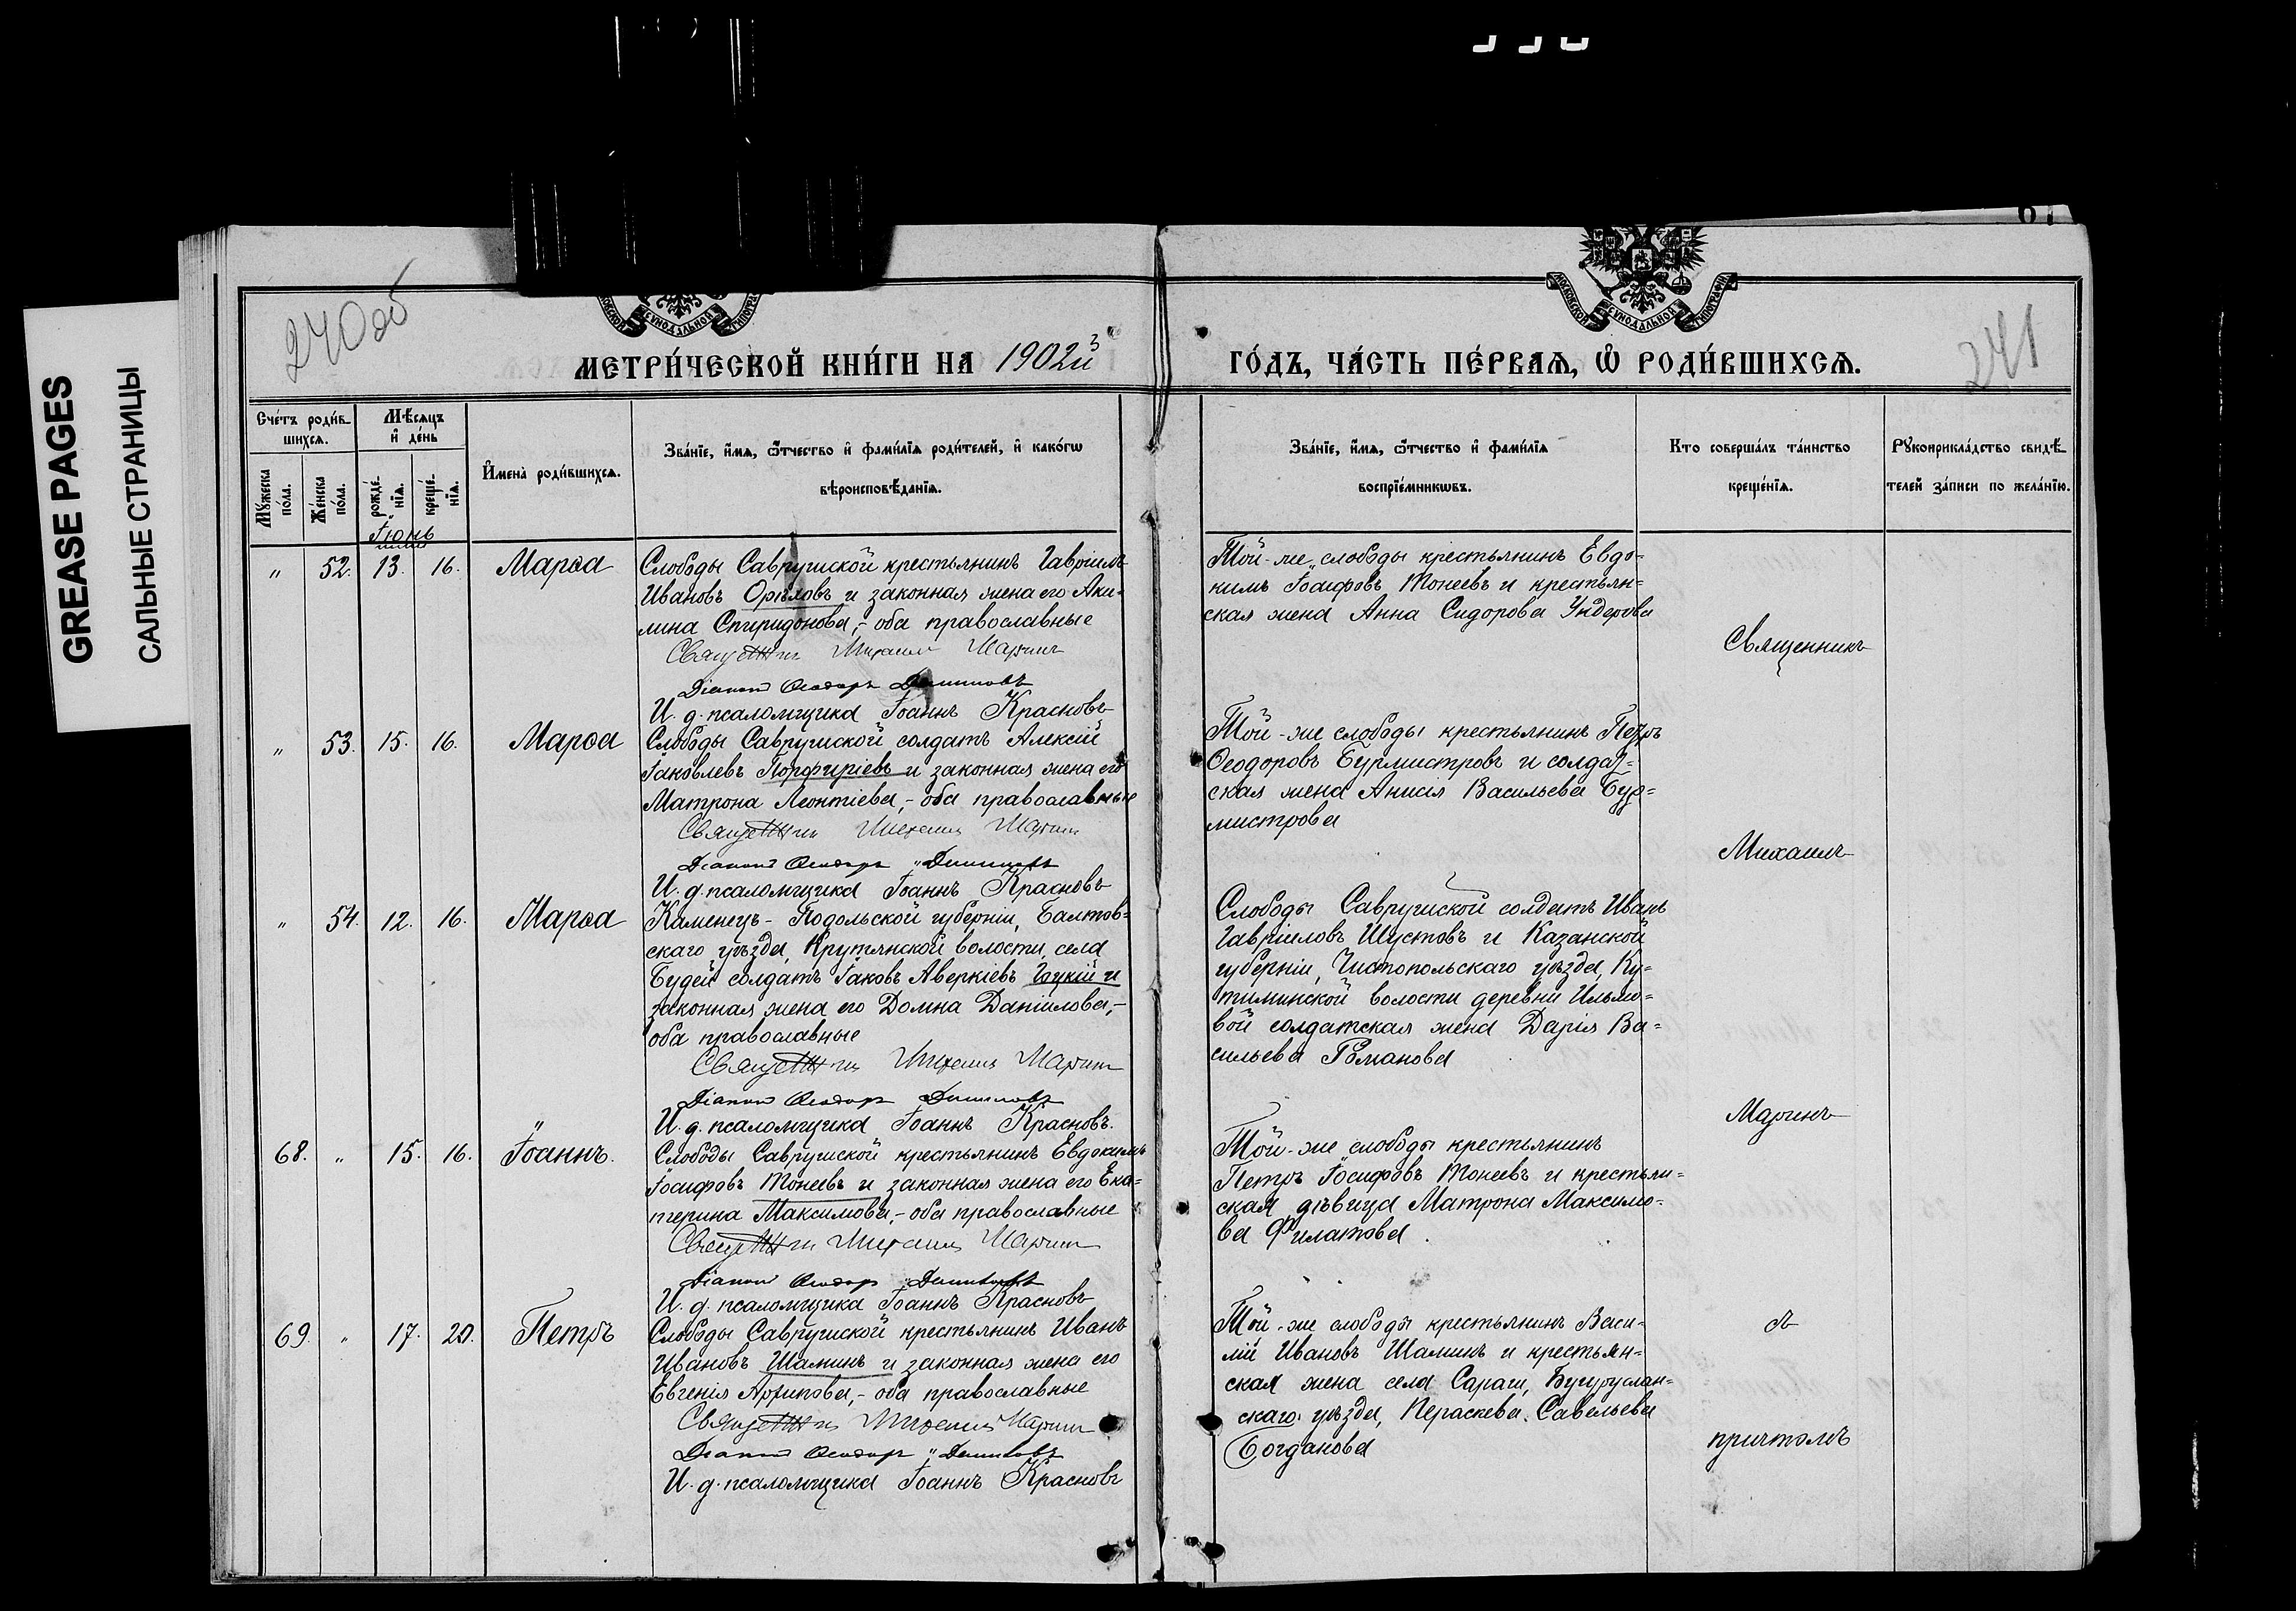 GREASE PAGES
САЛЬНЫЕ СТРАНИЦЫ
240об
241
МОСКОВСКОЙ СѴНОДАЛЬНОЙ ТИПОГРАФІИ
МОСКОВСКОЙ СѴНОДАЛЬНОЙ ТИПОГРАФІИ
МЕТРИ́ЧЕСКОЙ КНИ́ГИ НА 1902й
ГО́ДЪ, ЧА́СТЬ ПЕ́РВАѦ, Ѽ РОДИ́ВШИХСѦ.
Сче́тъ роди́в-
шихсѧ.
Мѣ́сѧцъ
и҆ де́нь
Мꙋ́жеска
по́ла.
Же́нска
по́ла.
рожде́-
нїѧ.
креще́-
нїѧ.
И҆мена̀ роди́вшихсѧ.
Зва́нїе, и҆́мѧ, ѻ҆́тчество и҆ фами́лїѧ роди́телей, и҆ како́гѡ
вѣроисповѣ́данїѧ.
Зва́нїе, и҆́мѧ, ѻ҆́тчество и҆ фами́лїѧ
воспрїе́мникѡвъ.
Кто соверша́лъ та́инство
креще́нїѧ.
Рꙋкоприкла́дство свидѣ́-
телей за́писи по жела́нїю.
Іюнь
" 52. 13. 16. Марѳа
Слободы Саврушской крестьянинъ Гавріилъ
Ивановъ Орѣховъ и законная жена его Аки-
лина Спиридонова,- оба православные
Священникъ Михаилъ Маринъ
Діаконъ Ѳеодоръ
И. д. псаломщика Іоаннъ Красновъ
Той-же слободы крестьянинъ Евдо-
кимъ Іосифовъ Монеевъ и крестьян-
ская жена Анна Сидорова Ундерова
" 53. 15. 16. Марѳа
Слободы Саврушской солдатъ Алексій
Іаковлевъ Порфиріевъ и законная жена его
Матрона Леонтіева,- оба православные
Священникъ Михаилъ Маринъ
Діаконъ Ѳеодоръ
И. д. псаломщика Іоаннъ Красновъ
Той-же слободы крестьянинъ Петръ
Ѳеодоровъ Бурмистровъ и солдат-
ская жена Анисія Васильева Бур-
мистрова
" 54. 12. 16. Марѳа
Каменецъ-Подольской губерніи, Балтов-
скаго уѣзда, Крутянской волости, села
Будей солдатъ Іаковъ Аверкіевъ Гоцкій и
законная жена его Домна Даніилова,-
оба православные
Священникъ Михаилъ Маринъ
Діаконъ Ѳеодоръ
И. д. псаломщика Іоаннъ Красновъ.
Слободы Саврушской солдатъ Иванъ
Гавріиловъ Шустовъ и Казанской
губерніи, Чистопольскаго уѣзда, Ку-
тиминской волости деревни Ильмо-
вой солдатская жена Дарія Ва-
сильева Романова
68. " 15. 16. Іоаннъ.
Слободы Саврушской крестьянинъ Евдокимъ
Іосифовъ Монеевъ и законная жена его Ека-
терина Максимова,- оба православные
Священникъ Михаилъ Маринъ
Діаконъ Ѳеодоръ
И. д. псаломщика Іоаннъ Красновъ
Той-же слободы крестьянинъ
Петръ Іосифовъ Монеевъ и крестьян-
ская дѣвица Матрона Максимо-
ва Филатова.
69. " 17. 20. Петръ
Слободы Саврушской крестьянинъ Иванъ
Ивановъ Шаминъ и законная жена его
Евгенія Архипова,- оба православные
Священникъ Михаилъ Маринъ
Діаконъ Ѳеодоръ
И. д. псаломщика Іоаннъ Красновъ
Той-же слободы крестьянинъ Васи-
лій Ивановъ Шаминъ и крестьян-
ская жена села Сараги, Бугуруслан-
скаго уѣзда, Параскева Савельева
Богданова
Священникъ
Михаилъ
Маринъ
съ
причтомъ